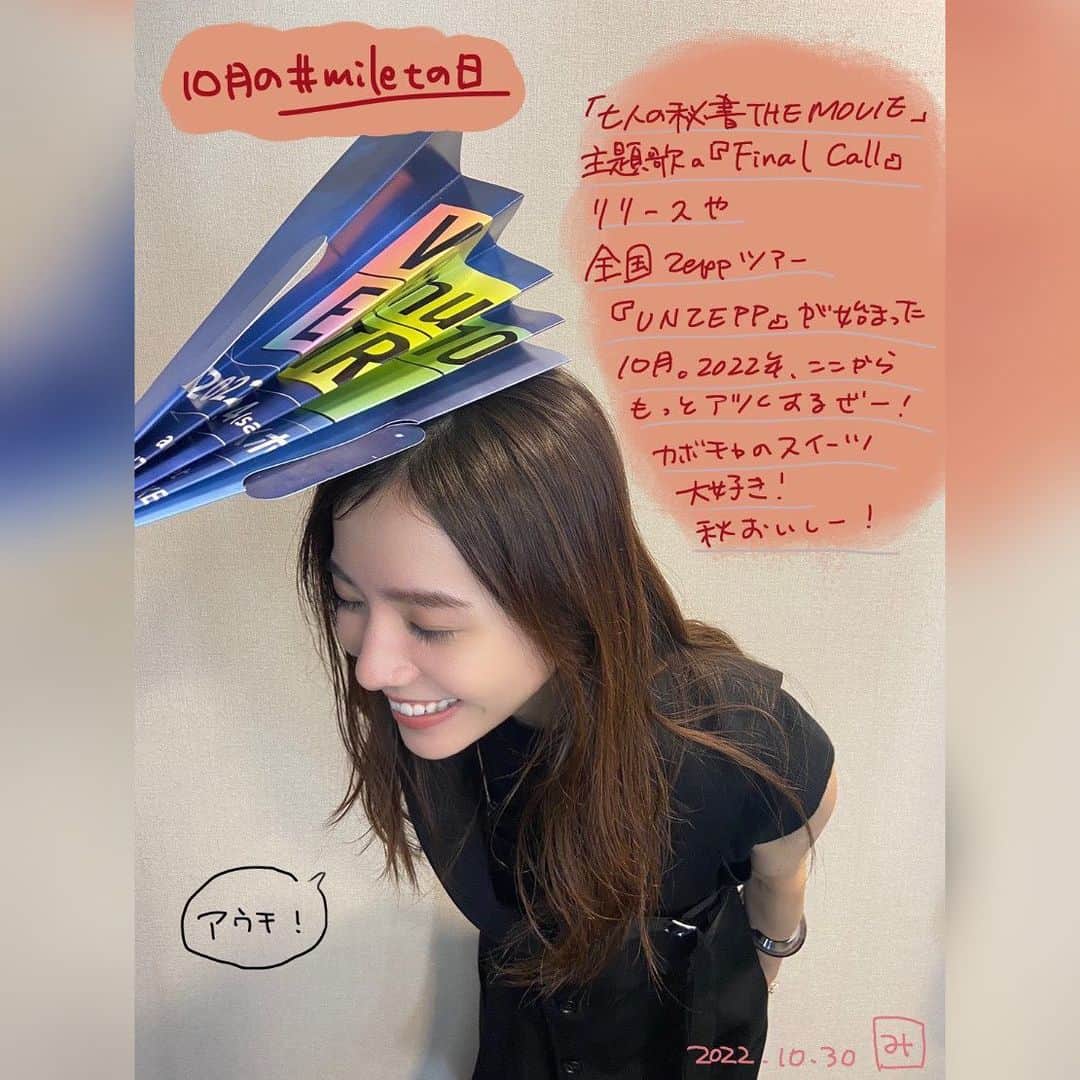 10月の#miletの日
「七人の秘書THE MOVIE」
主題歌の『Final Call』
リリースや
全国Zeppツアー
『UNZEPP』が始まった
10月。2022年、ここから
もっとアツくするぜー！
カボチャのスイーツ
大好き！
秋おいしー！
VnuO
VER
アウチ！
2022.10.30 み